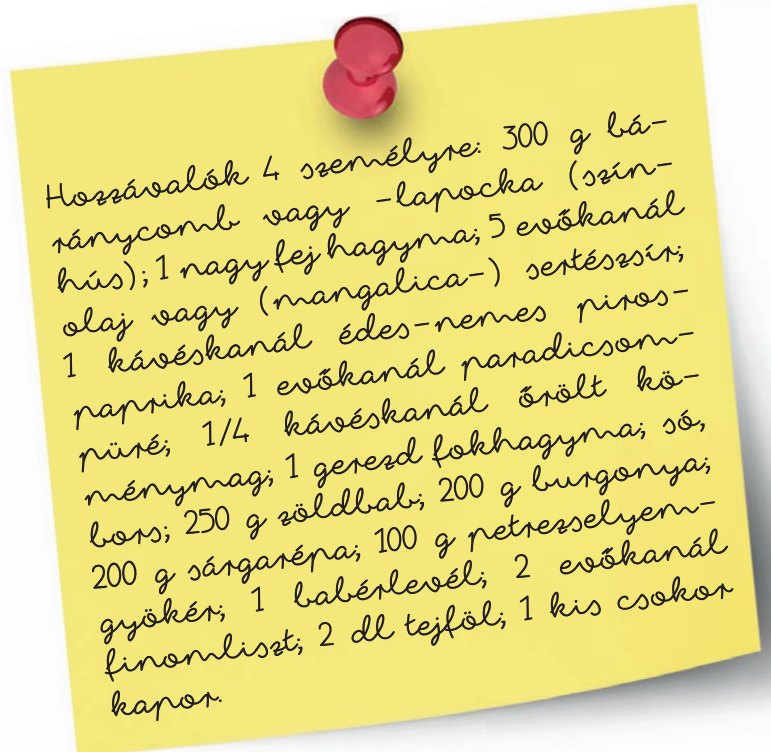 Hozzávalók 4 személyre: 300 g bá-
ránycomb vagy -lapocka (szín-
hús); 1 nagy fej hagyma; 5 evőkanál
olaj vagy (mangalica-) sertészsír;
1 kávéskanál édes-nemes piros-
paprika; 1 evőkanál paradicsom-
püré; 1/4 kávéskanál őrölt kö-
ménymag; 1 gerezd fokhagyma; só,
bors; 250 g zöldbab; 200 g burgonya;
200 g sárgarépa; 100 g petrezselyem-
gyökér; 1 babérlevél; 2 evőkanál
finomliszt; 2 dl tejföl; 1 kis csokor
kapor.